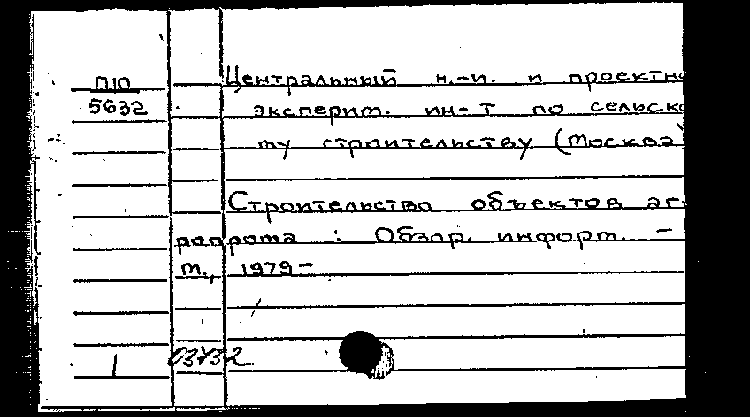 П10
5632
Центральный н.-и. и проектно
эксперим. ин-т по сельско
му строительству (Москва)
Строительство объектов аг
ропрома : Обзор. информ. –
М., 1979–
1
03732